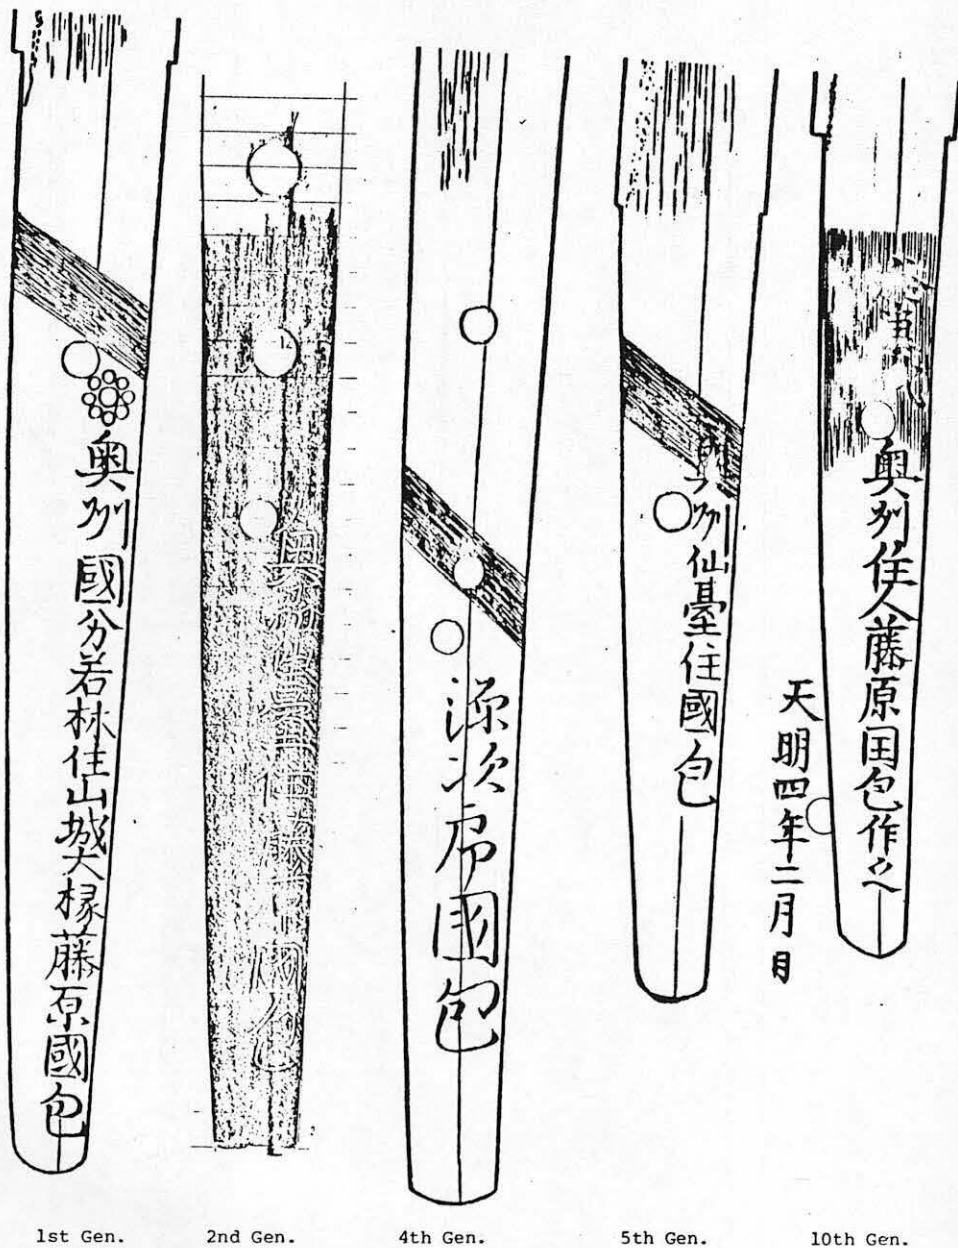 奥州國分若林住山城大椽藤原國包
奥州仙臺住藤原國包
源次郎國包
奥州仙臺住國包
奥州住人藤原国包作之
天明四年二月日
1st Gen.
2nd Gen.
4th Gen.
5th Gen.
10th Gen.